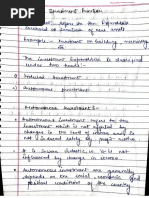 Investment Function
Investment :- refers to the expenditure
incurred on creation of new assets
Example - Investment on building, machinery
etc
The investment expenditure is classified
under two heads :-
1) Induced Investment
2) Autonomous Investment
Autonomous Investment :-
Autonomous investment refers to the
investment which is not affected by
changes in the level of income and is
not induced solely by profit motive
It is income inelastic, i.e. is not
influenced by change in income
Autonomous investment are generally
political condition of the country